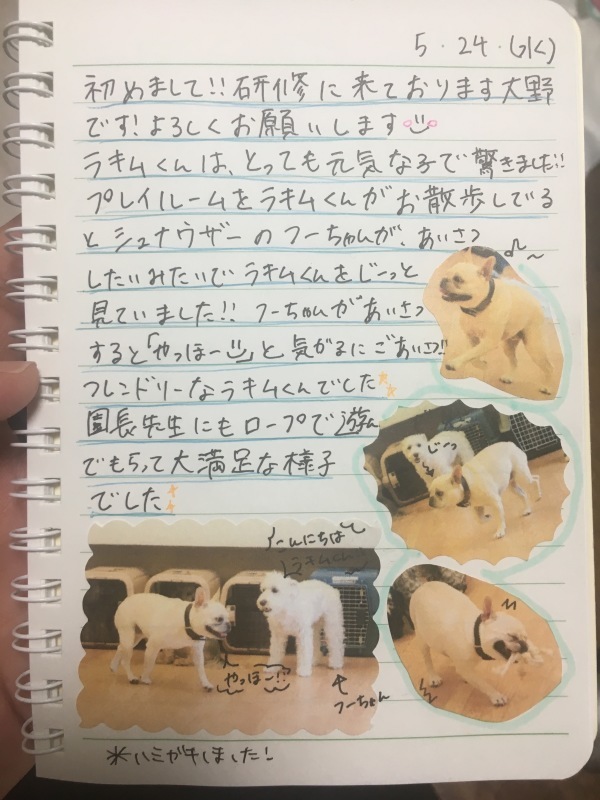 5・24・(水)
初めまして!!研修に来ております大野
です!よろしくお願いします
ラキムくんは、とっても元気な子で驚きました!!
プレイルームをラキムくんがお散歩してる
とシュナウザーのフーちゃんが、あいさつ
したいみたいでラキムくんをじーっと
見ていました!!フーちゃんがあいさつ
すると「やっほー」と気がるにごあいさつ!!
フレンドリーなラキムくんでした
園長先生にもロープで遊ん
でもらって大満足な様子
でした
じーっ
こんにちは
ラキムくん
やっほー!!
フーちゃん
※ハミガキしました!